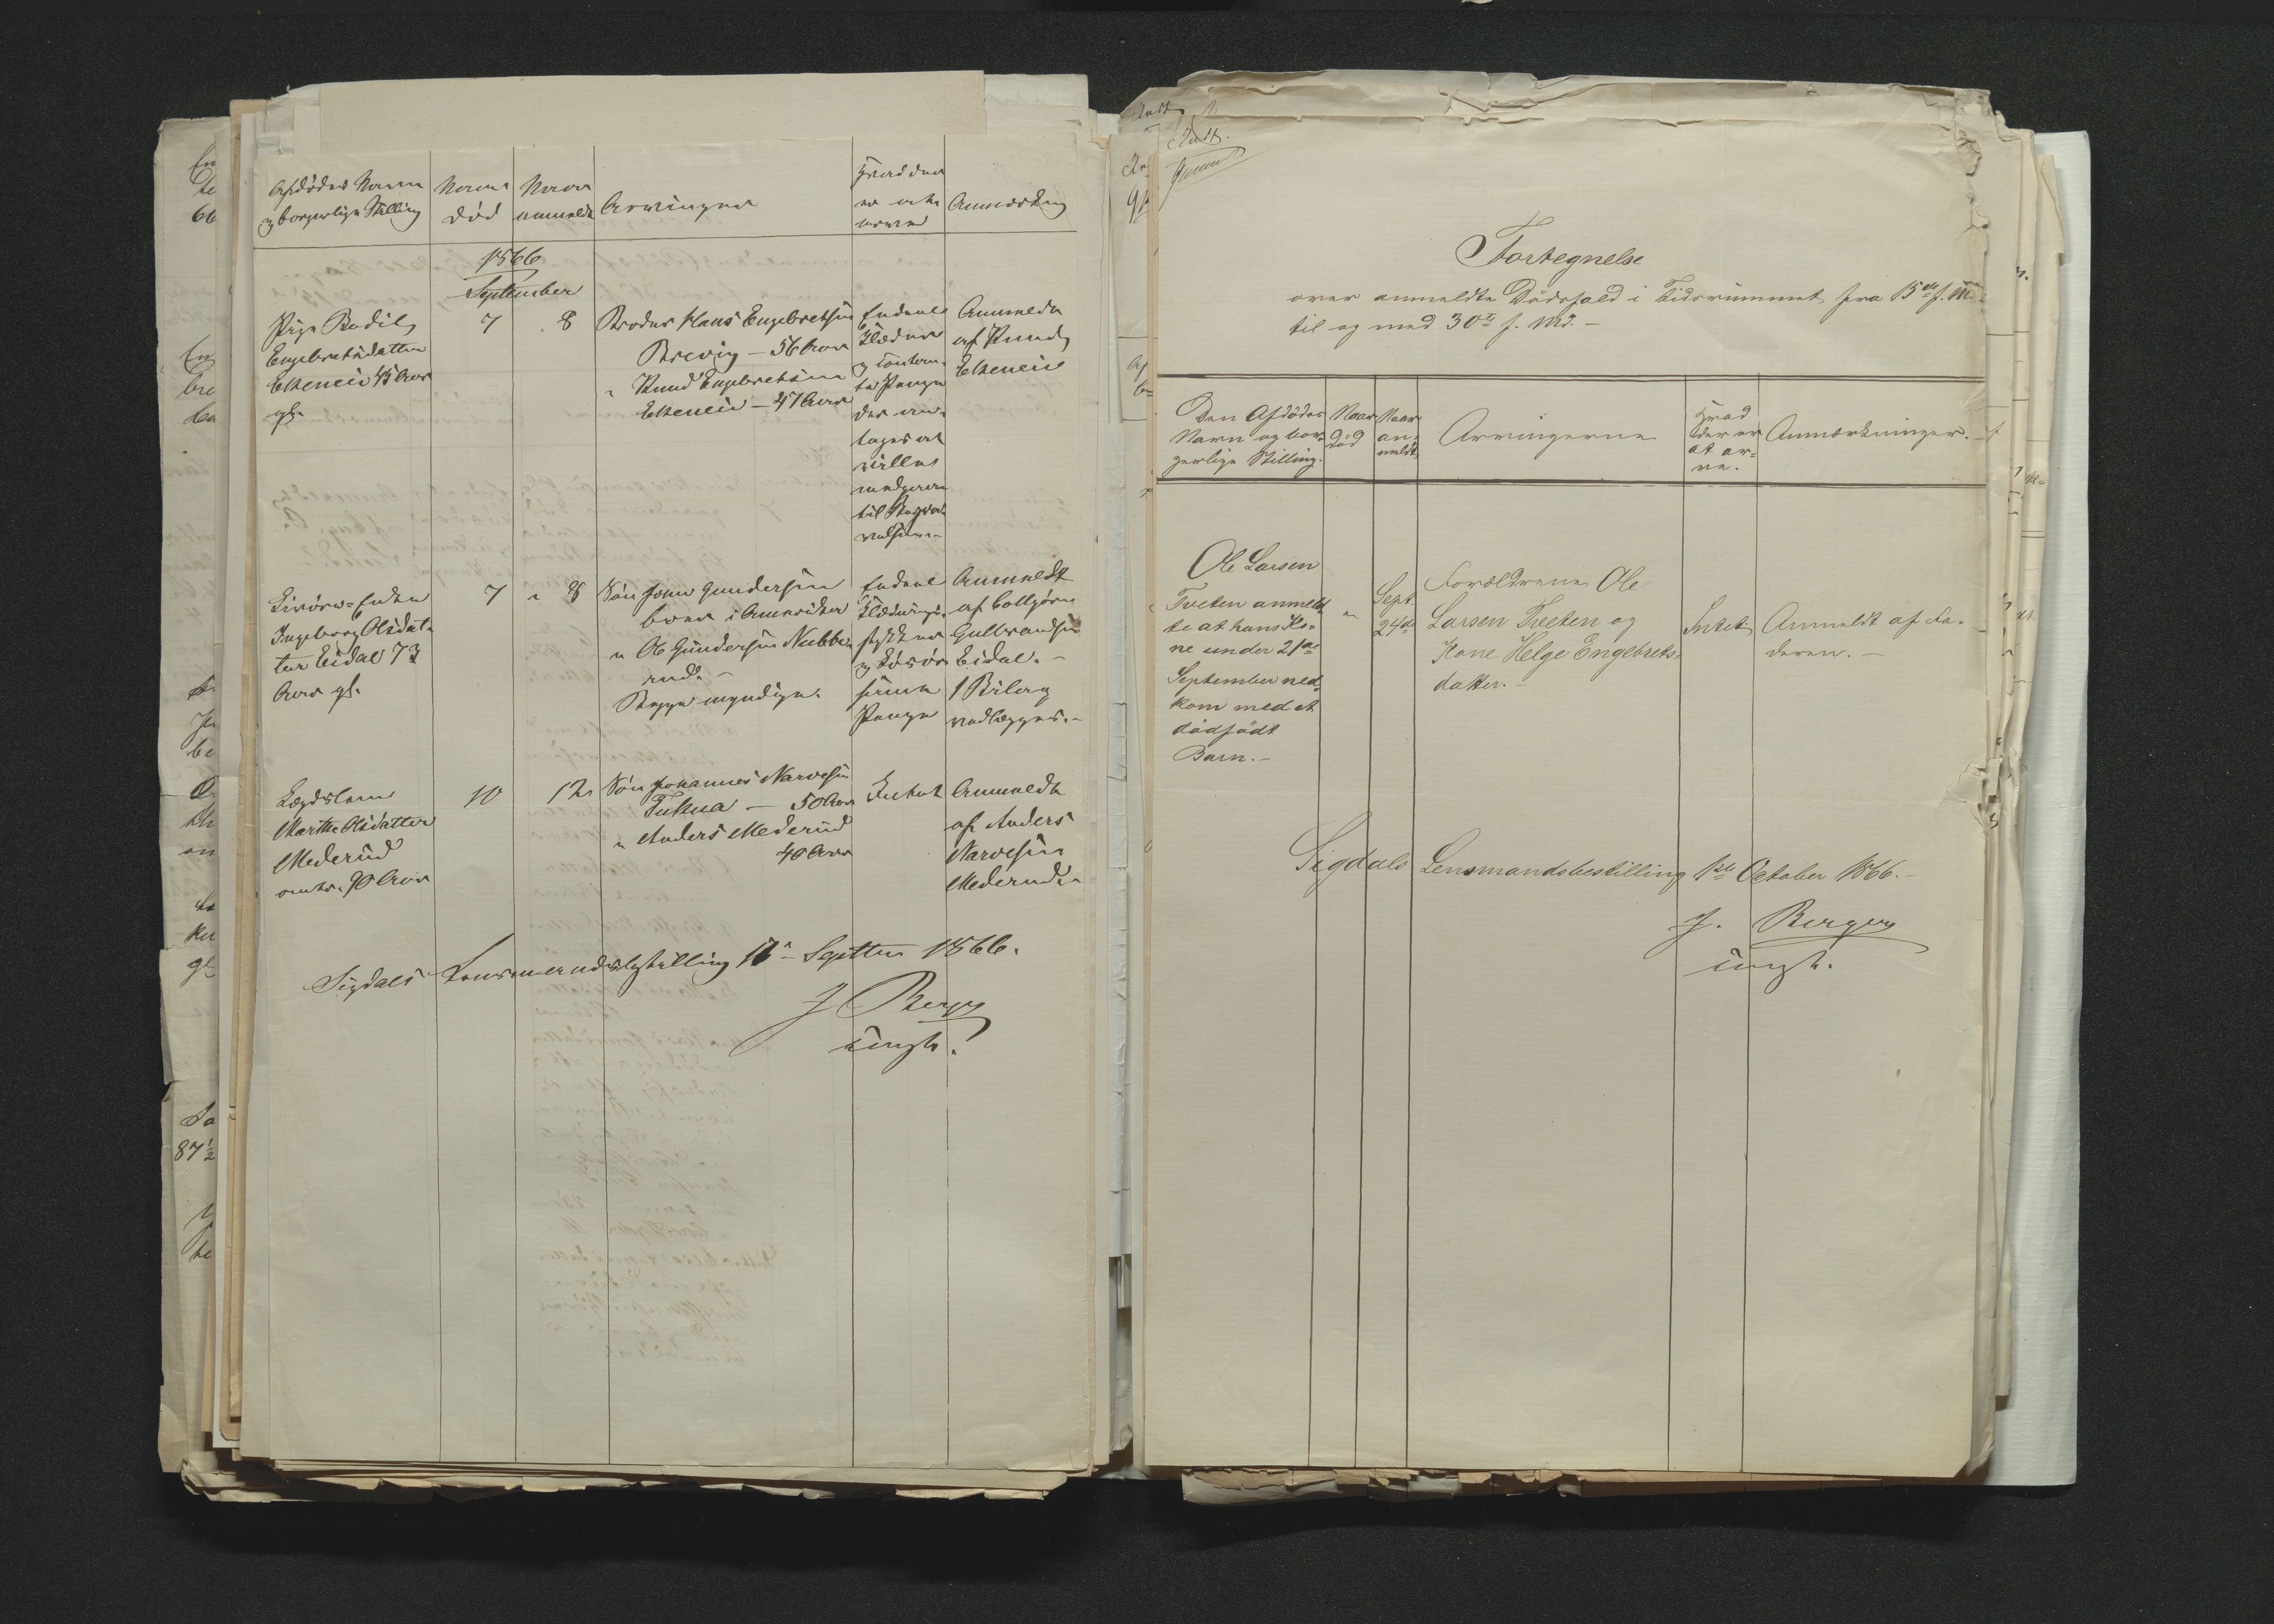 Afdødes Navn
og borgerlige Stilling
Naar
død
Naar
anmeldt
Arvinger
Hvad der
er at
arve
Anmærkning
1866
September
Pige Bodil
Engebretsdatter
Ekeneie 45 Aar
gl.
7
8
Broder Hans Engebretsen
Brevig – 56 Aar
" Knud Engebretsen
Ekeneie – 47 Aar
Endeel
Klæder
og contan-
te Penge
der an-
tages at
ville
medgaae
til Begra-
velsen.-
Anmeldt
af Knud
Ekeneie
Livørs-Enke
Ingeborg Olsdat-
ter Eidal 73
Aar gl.
7
" 8
Søn Gunder
boer i Amerika
" Ole Gundersen Nubbe-
rud. –
Begge myndige.
Endeel
Klædnings-
stykker
og Løsøre
samt
Penge
Anmeldt
af Colbjørn
Gulbrandsen
Eidal. –
1 Bilag
vedlægges.-
Lægdslem
Marthe Olsdatter
Mederud
omtr. 90 Aar
10
12
Søn Johannes Narvesen
– 50 Aar
" Anders Mederud
40 Aar
Intet
Anmeldt
af Anders
Narvesen
Mederud.
Sigdals Lensmandsbestilling Septbr 1866.
J Berger
const.
Fortegnelse
over anmeldte Dødsfald i Tidsrummet fra 15de f. Md.
til og med 30te f. Md. –
Den Afdødes
Navn og bor-
gerlige Stilling.
Naar
død
Naar
an-
meldt
Arvingerne
Hvad
der er
at ar-
ve.
Anmærkninger.
Ole Larsen
Tveten anmeld-
te at hans Ko-
ne under 21de
September ned-
kom med et
dødfødt
Barn. –
"
Sept.
24de
Forældrene Ole
Larsen Tveten og
Kone Helge Engebrets-
datter. –
Intet
Anmeldt af Fa-
deren. –
Sigdals Lensmandsbestilling 1ste October 1866. –
J. Berger
const.